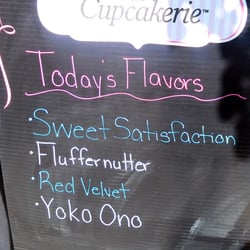 Cupcakerie™
Today's Flavors
• Sweet Satisfaction
• Fluffernutter
• Red Velvet
• Yoko Ono